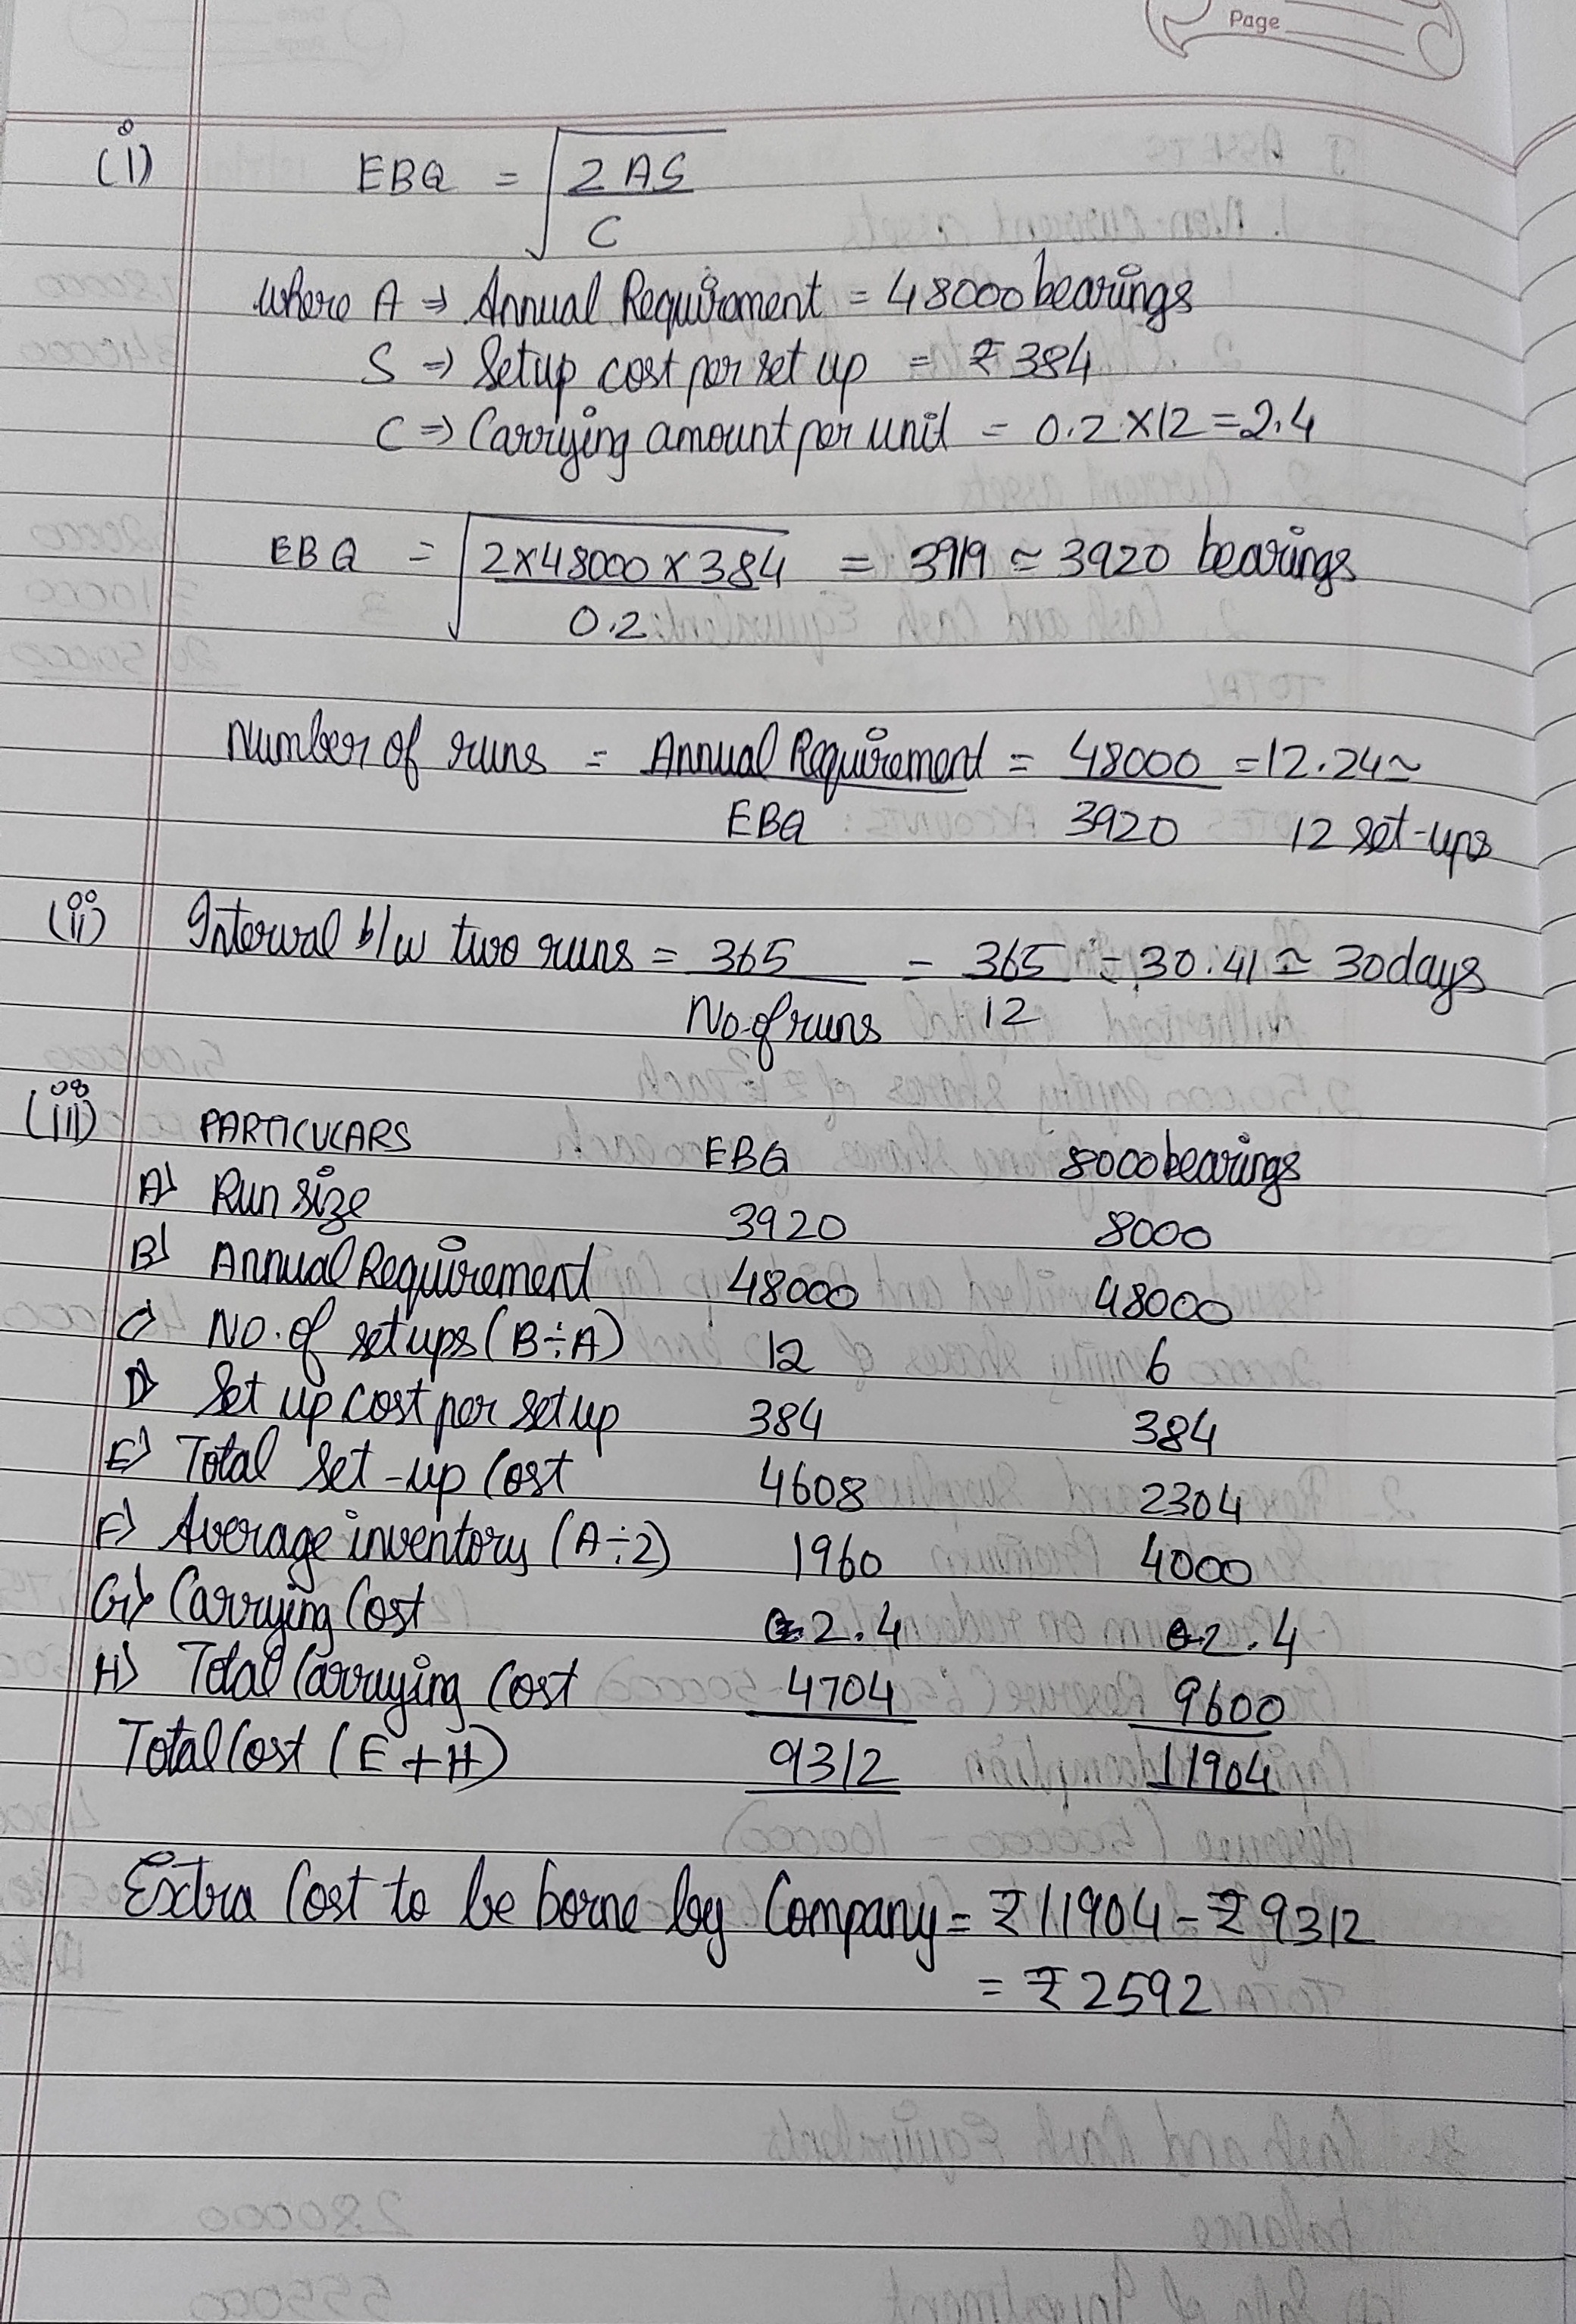 Page
(i) EBQ = √ 2AS
C
where A ⇒ Annual Requirement = 48000 bearings
S ⇒ Setup cost per set up = ₹ 384
C ⇒ Carrying amount per unit = 0.2 × 12 = 2.4
EBQ = √ 2×48000×384 = 3919 ≃ 3920 bearings
0.2
Number of runs = Annual Requirement = 48000 = 12.24 ≃
EBQ 3920 12 set-ups
(ii) Interval b/w two runs = 365 = 365 = 30.41 ≃ 30 days
No. of runs 12
(iii) PARTICULARS EBQ 8000 bearings
A) Run size 3920 8000
B) Annual Requirement 48000 48000
C) No. of setups (B÷A) 12 6
D) Set up cost per setup 384 384
E) Total Set-up Cost 4608 2304
F) Average inventory (A÷2) 1960 4000
G) Carrying Cost 2.4 2.4
H) Total Carrying Cost 4704 9600
Total Cost (E+H) 9312 11904
Extra Cost to be borne by Company = ₹11904 - ₹9312
= ₹2592